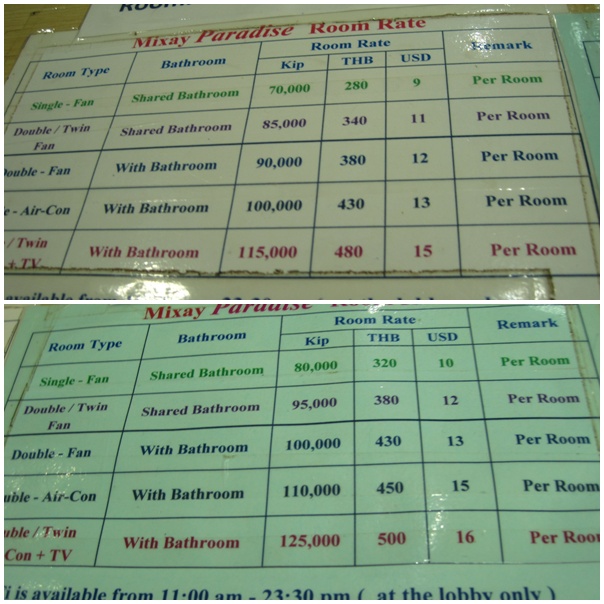 Mixay Paradise Room Rate
Room Type Bathroom Room Rate Remark
Kip THB USD
Single - Fan Shared Bathroom 70,000 280 9 Per Room
Double / Twin Fan Shared Bathroom 85,000 340 11 Per Room
Double - Fan With Bathroom 90,000 380 12 Per Room
- Air-Con With Bathroom 100,000 430 13 Per Room
/ Twin + TV With Bathroom 115,000 480 15 Per Room
Mixay Paradise
Room Type Bathroom Room Rate Remark
Kip THB USD
Single - Fan Shared Bathroom 80,000 320 10 Per Room
Double / Twin Fan Shared Bathroom 95,000 380 12 Per Room
Double - Fan With Bathroom 100,000 430 13 Per Room
uble - Air-Con With Bathroom 110,000 450 15 Per Room
uble / Twin Con + TV With Bathroom 125,000 500 16 Per Roo
is available from 11:00 am - 23:30 pm ( at the lobby only )